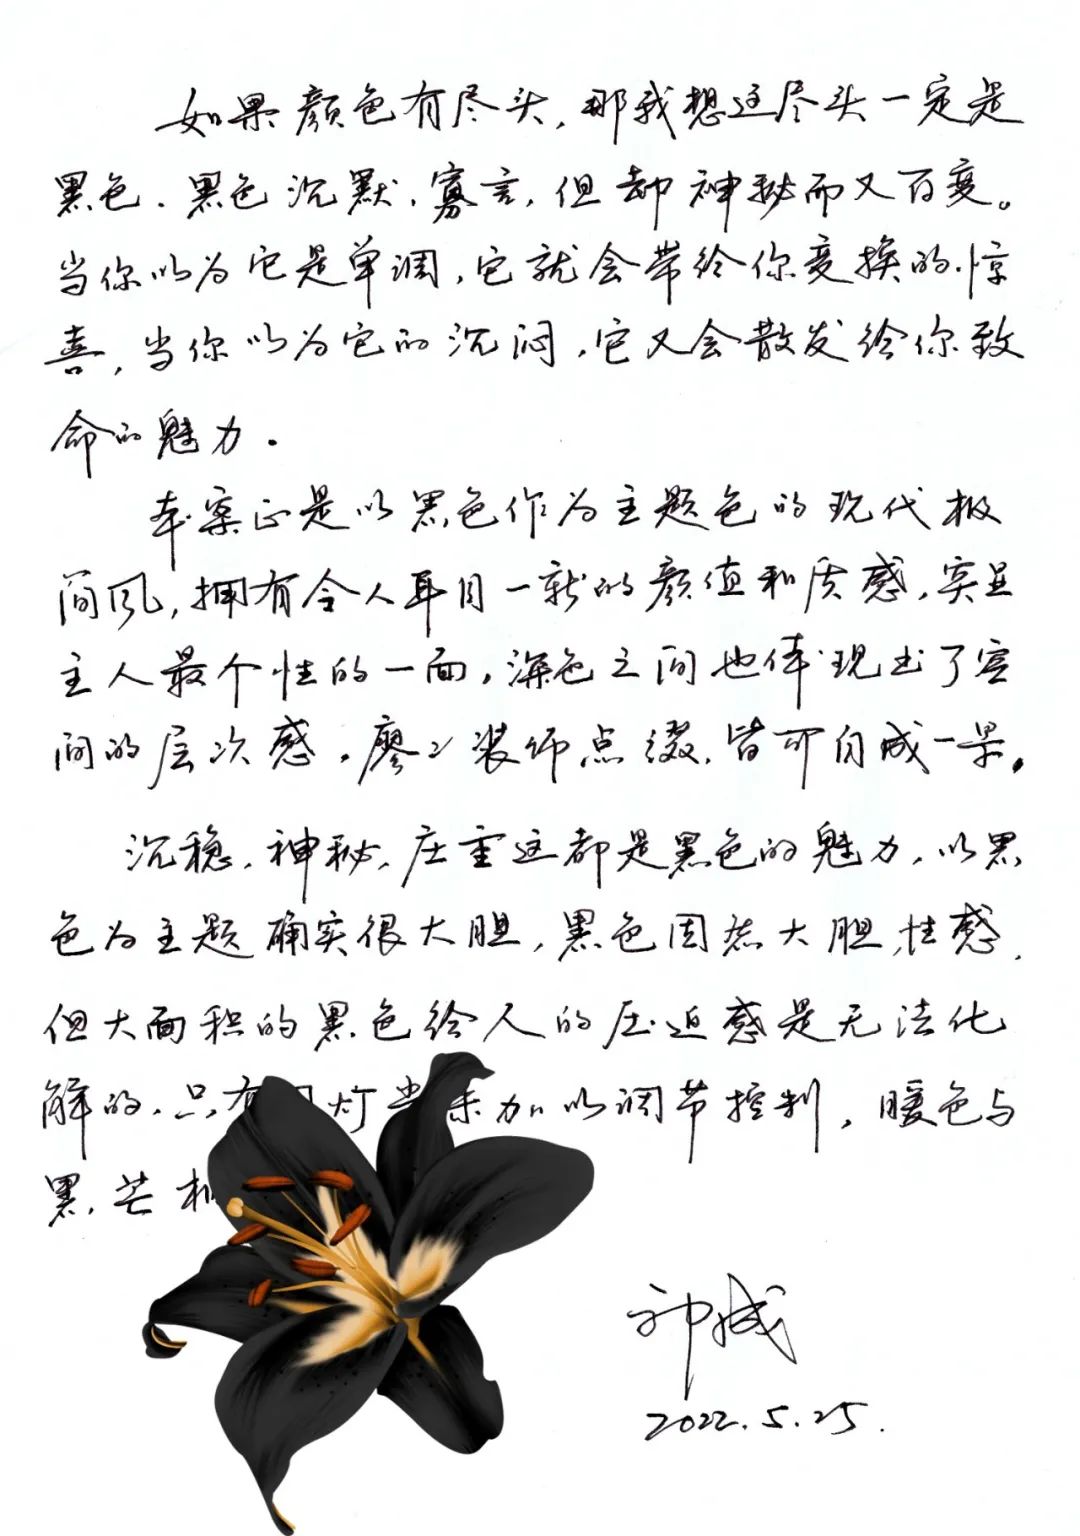 如果颜色有尽头,那我想这尽头一定是
黑色.黑色沉默.寡言,但却神秘而又百变。
当你以为它是单调,它就会带给你变换的惊
喜,当你以为它的沉闷,它又会散发给你致
命的魅力.
本案正是以黑色作为主题色的现代极
简风,拥有令人耳目一新的颜值和质感,实是
主人最个性的一面,深色之间也体现出了空
间的层次感.廖々装饰点缀.皆可自成一景.
沉稳.神秘.庄重这都是黑色的魅力,以黑
色为主题确实很大胆,黑色固然大胆.性感.
但大面积的黑色给人的压迫感是无法化
解的.只有 灯光来加以调节控制,暖色与
黑.芒
2022.5.25.